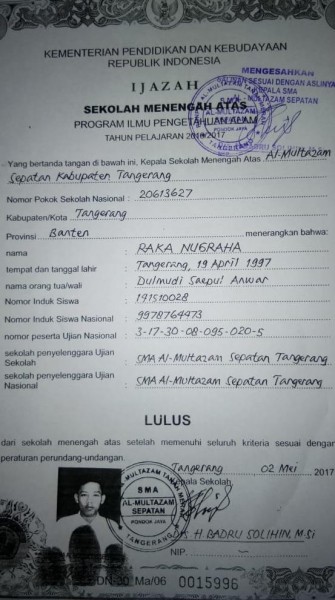 KEMENTERIAN PENDIDIKAN DAN KEBUDAYAAN
REPUBLIK INDONESIA
IJAZAH
MENGESAHKAN
SESUAI DENGAN ASLINYA
KEPALA SMA
AL-MULTAZAM SEPATAN
SEKOLAH MENENGAH ATAS
PROGRAM ILMU PENGETAHUAN ALAM
TAHUN PELAJARAN 2016/2017
Yang bertanda tangan di bawah ini, Kepala Sekolah Menengah Atas Al-Multazam
Sepatan Kabupaten Tangerang
Nomor Pokok Sekolah Nasional : 20613627
Kabupaten/Kota : Tangerang
Provinsi Banten menerangkan bahwa:
nama : RAKA NUGRAHA
tempat dan tanggal lahir : Tangerang, 19 April 1997
nama orang tua/wali : Dulmudi Saepul Anwar
Nomor Induk Siswa : 191510028
Nomor Induk Siswa Nasional : 9978764973
nomor peserta Ujian Nasional : 3-17-30-08-095-020-5
sekolah penyelenggara Ujian Sekolah : SMA Al-Multazam Sepatan Tangerang
sekolah penyelenggara Ujian Nasional : SMA Al-Multazam Sepatan Tangerang
LULUS
dari sekolah menengah atas setelah memenuhi seluruh kriteria sesuai dengan
peraturan perundang-undangan.
Tangerang 02 Mei 2017
Kepala Sekolah,
SMA
AL-MULTAZAM
SEPATAN
PONDOK JAYA
TANGERANG
H BADRU SOLIHIN, M.Si
NIP.
DN-30 Ma/06 0015996